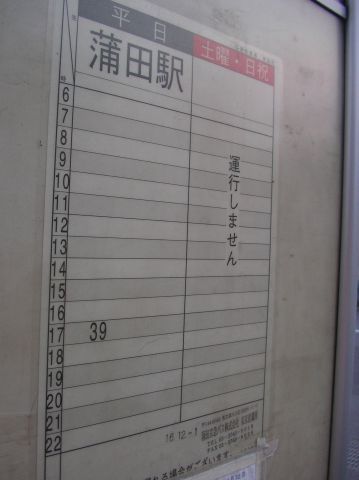 平日 土曜・日祝
蒲田駅
時
6
7
8
9
10
11
12
13
14
15
16
17 39
18
19
20
21
22
運行しません
16.12-1
れる場合がございます。